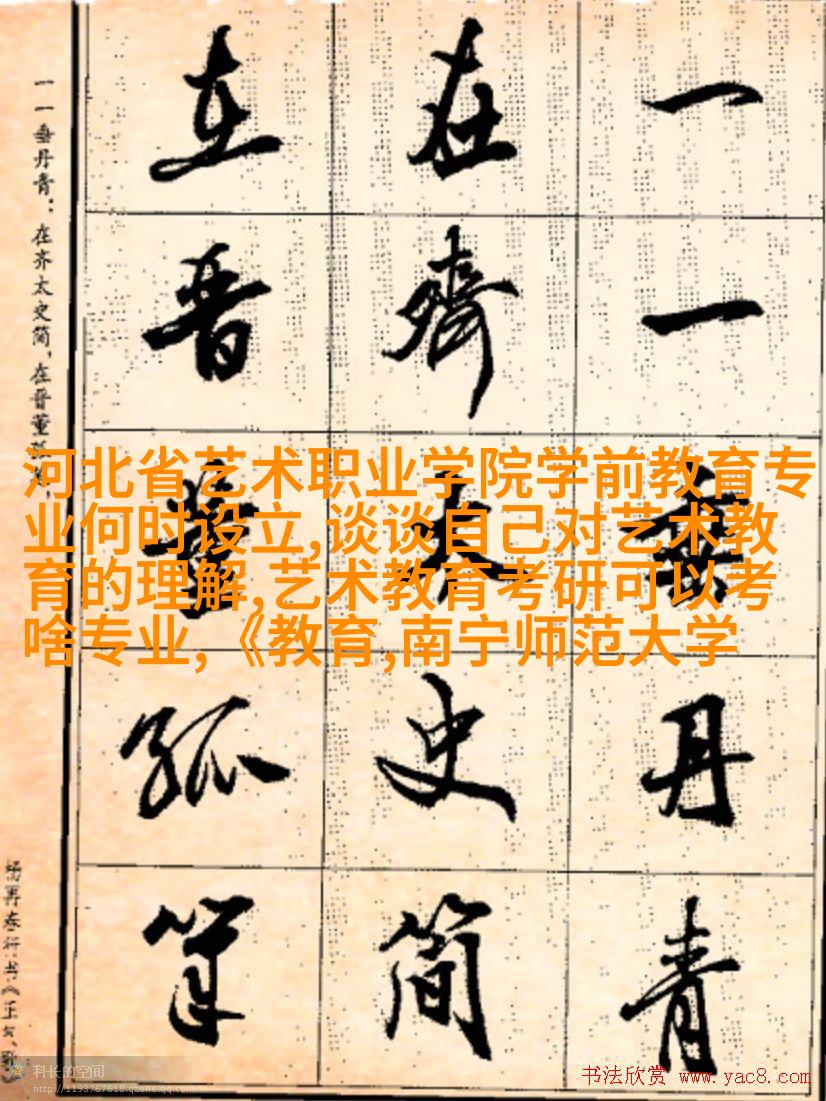 一一垂丹青
在齐太史简
在晋董狐笔
一一垂丹青：在齐太史简，在晋董狐
河北省艺术职业学院学前教育专
业何时设立,谈谈自己对艺术教
育的理解,艺术教育考研可以考
啥专业,《教育,南宁师范大学
科长的空间
http://1193767618.qzone.qq.com
书法欣赏 www.yac8.com